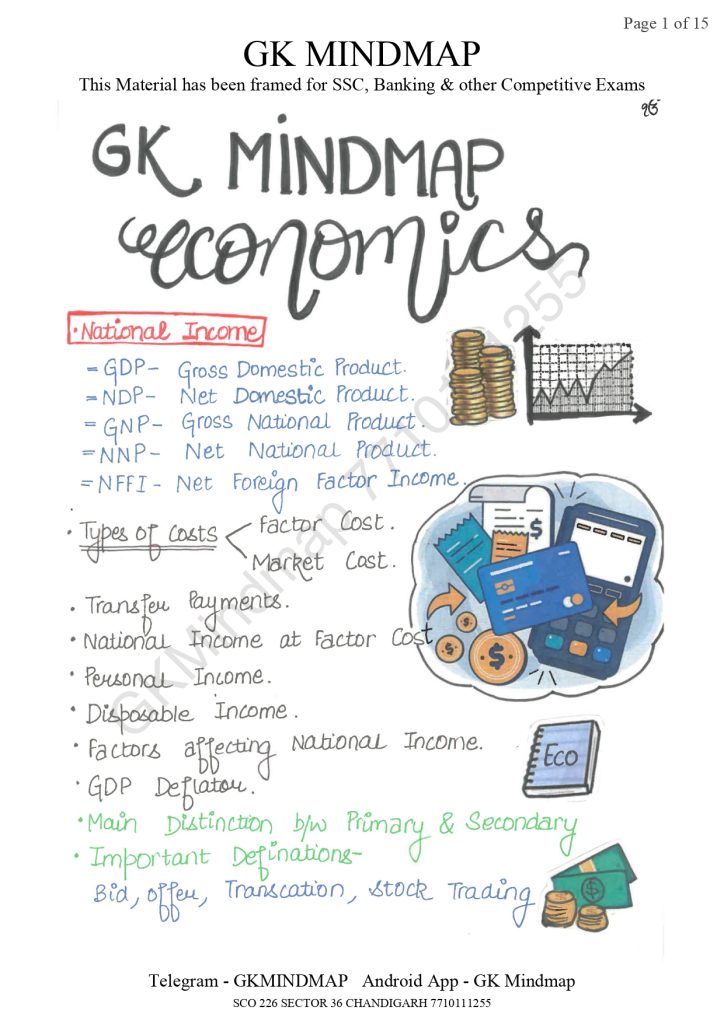 Page 1 of 15
GK MINDMAP
This Material has been framed for SSC, Banking & other Competitive Exams
GK MINDMAP
economics
• National Income
= GDP - Gross Domestic Product.
= NDP - Net Domestic Product.
= GNP - Gross National Product.
= NNP - Net National Product.
= NFFI - Net Foreign Factor Income.
• Types of Costs
Factor Cost.
Market Cost.
• Transfer Payments.
• National Income at Factor Cost
• Personal Income.
• Disposable Income.
• Factors affecting National Income.
Eco
• GDP Deflator.
• Main Distinction b/w Primary & Secondary
• Important Definations-
Bid, offer, Transcation, Stock Trading
GKMindmap 7710111255
Telegram - GKMINDMAP Android App - GK Mindmap
SCO 226 SECTOR 36 CHANDIGARH 7710111255